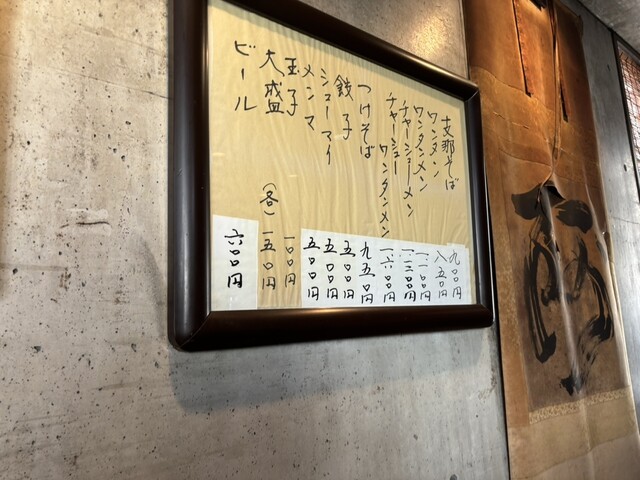 支那そば 九〇〇円
ワンタン 八五〇円
ワンタンメン 一一〇〇円
チャーシューメン 一二〇〇円
チャーシューワンタンメン 一六〇〇円
つけそば 九五〇円
餃子 五〇〇円
シューマイ 五〇〇円
メンマ 五〇〇円
玉子 一〇〇円
大盛 (各) 一五〇円
ビール 六〇〇円